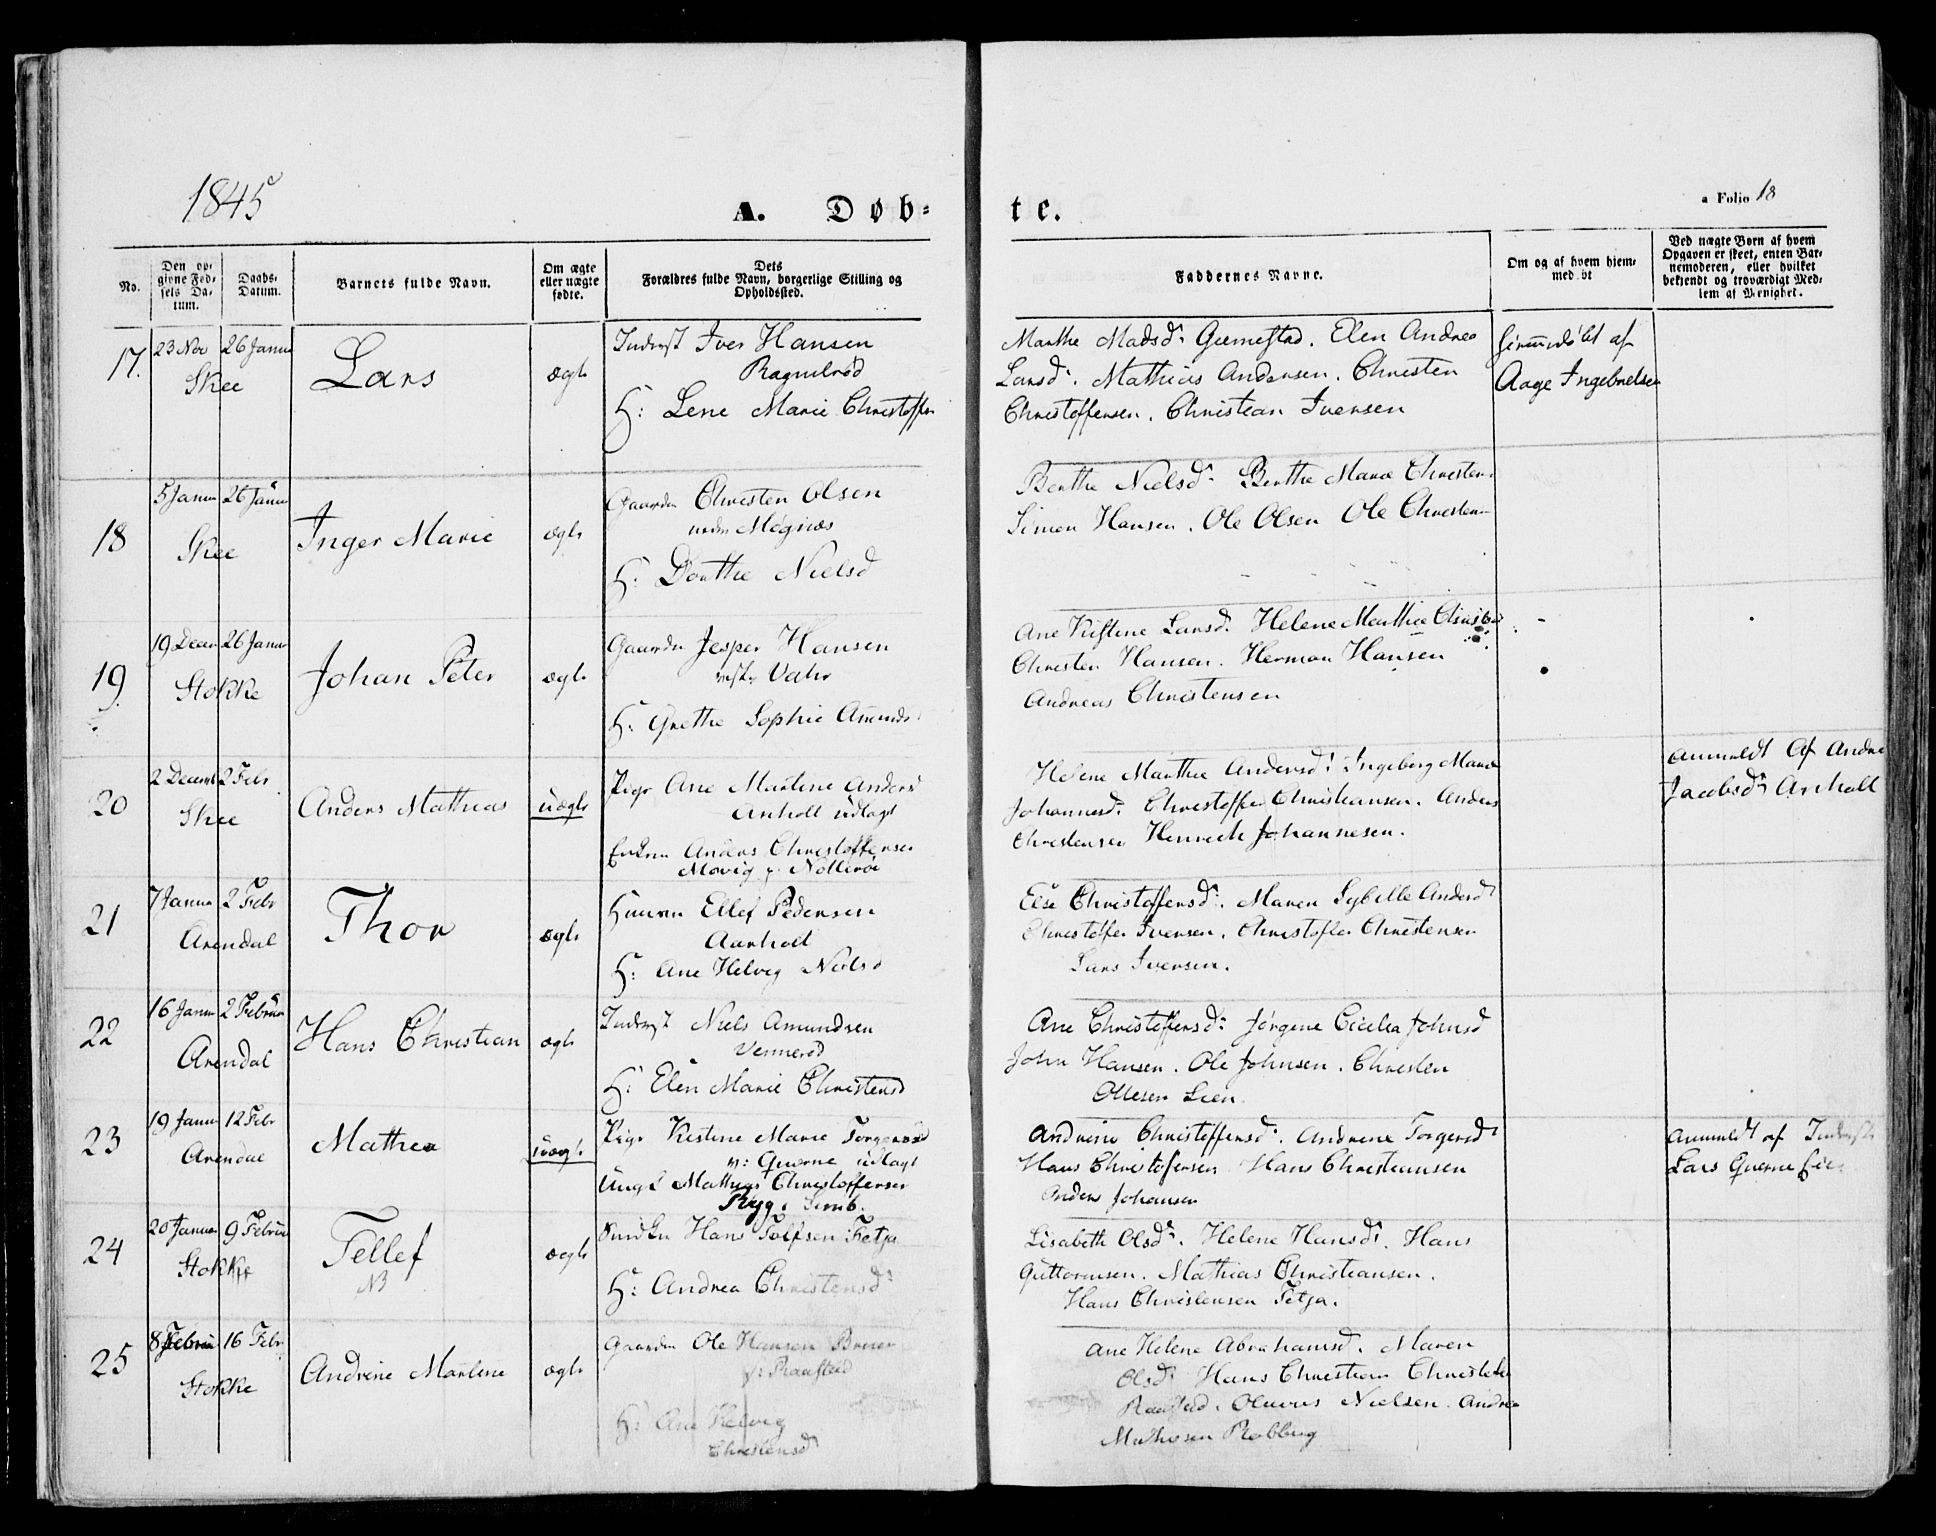 1845
A. Døb-
te.
a Folio 18
No.
Den op-
givne Fød-
sels Da-
tum.
Daabs-
Datum.
Barnets fulde Navn.
Om ægte
eller uægte
fødte.
Dets
Forældres fulde Navn, borgerlige Stilling og
Opholdssted.
Faddernes Navne.
Om og af hvem hjem-
medøbt
Ved uægte Børn af hvem
Opgaven er skeet, enten Bar-
nemoderen, eller hvilket
bekjendt og troværdigt Med-
lem af Menighet.
17.
23 Nov
26 Janu
Skee
Lars
ægte
Inderst Iver Hansen
Ragnelrød
H: Lene Marie Christoffer
Marthe Madsd: Gjemestad. Elen Andrea
Larsd. Mathias Andersen. Christen
Christoffersen. Christian Iversen
hjemmedøbt af
Aage Ingebretsen
18
5 Janu
26 Janu
Skee
Inger Marie
ægte
Gaardm Christen Olsen
nedre Møgnæs
H: Dorthe Nielsd
Berthe Nielsd: Berthe Marie Christens
Simon Hansen. Ole Olsen Ole Christen
19.
19 Decm
26 Janu
Stokke
Johan Peter
ægte
Gaardm Jesper Hansen
H: Grethe Sophie Amunds
Ane Kistine Larsd. Helene Marthie
Christen Hansen. Herman Hansen
Andreas Christensen
20
2 Decmb
2 Febr
Skee
Anders Mathias
uægte
Pige Ane Martene Andersd
Anholt udlagt
Anders Christoffersen
Møvig p. Nøtterøe
Helene Marthie Andersd: Ingeborg Marie
Johannesd: Christoffer Christiansen. Anders
Christensen Henrich Johannesen.
anmeldt Af Andrea
Jacobsd: Anholt
21
7 Janua
2 Febr
Arendal
Thor
ægte
Ellef Pedersen
Aarholt
H: Ane Helvig Nielsd
Else Christoffersd: Maren Sybille Andersd:
Christoffer Iversen. Christoffer Christensen
Lars Iversen.
22
16 Janu
2 Februar
Arendal
Hans Christian
ægte
Inderst Niels Amundsen
Vennerød
H: Elen Marie Christensd
Ane Christoffersd: Jørgine Cicilia Johnsd
John Hansen. Ole Johnsen. Christen
Ollesen Lien
23
19 Janu
12 Febr
Arendal
Mathea
uægte
Pige Kistine Marie Torgersd
v: Querne udlagt
Ungk Mathias Christoffersen
Ryg i Semb.
Andrine Christoffersd: Andrine Torgersd:
Hans Christofersen Hans Christiansen
Anders Johansen
anmeldt af Inderst
Lars Querne Eie
24
20 Janua
9 Februar
Stokke
Tellef
NB
ægte
Hans Tolfsen Fetja
H: Andrea Christensd:
Lisabeth Olsd:. Helene Hansd:. Hans
Guttormsen. Mathias Christiansen.
Hans Christensen Fetja.
25
8 Februa
16 Febr
Stokke
Andrine Martene
ægte
Gaardm Ole Hansen
v: Raastad
H: Ane Helvig
Christensd:
Ane Helene Abrahamsd. Maren
Olsd: Hans Christian Christensen
Raastad. Oluvus Nielsen. Andrea
Mathisen Robberg